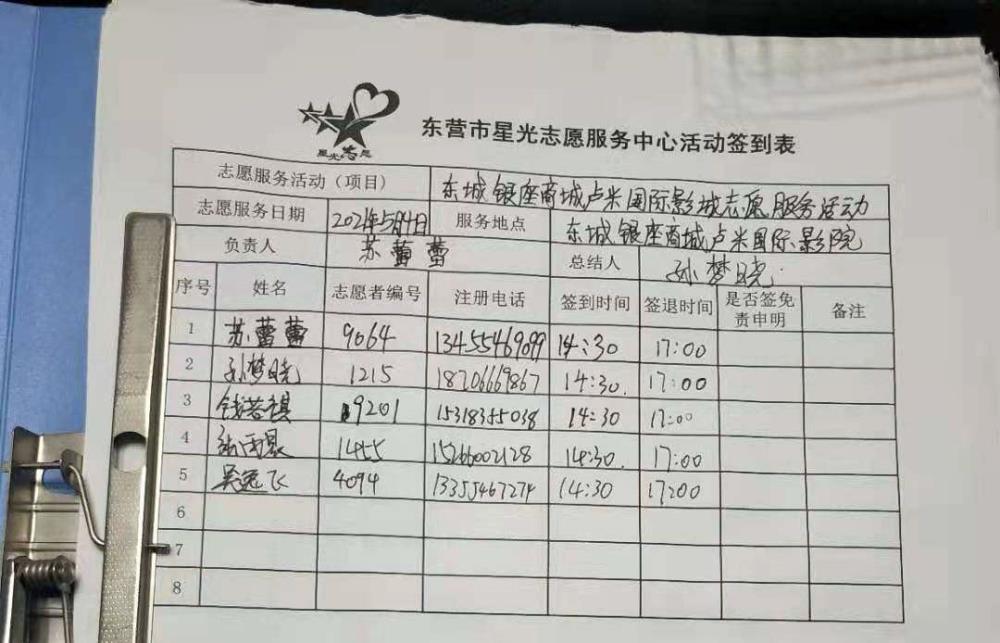 星光志愿
东营市星光志愿服务中心活动签到表
志愿服务活动（项目） 东城银座商城卢米国际影城志愿服务活动
志愿服务日期 2021年5月4日 服务地点 东城银座商城卢米国际影院
负责人 苏蕾蕾 总结人 孙梦晓
序号 姓名 志愿者编号 注册电话 签到时间 签退时间 是否签免责申明 备注
1 苏蕾蕾 9064 13455469099 14:30 17:00
2 孙梦晓 1215 18706669867 14:30. 17:00
3 9201 15318355038 14:30 17:00
4 1455 15266002128 14:30. 17:00
5 吴逸飞 4094 13355467274 14:30 17:00
6
7
8